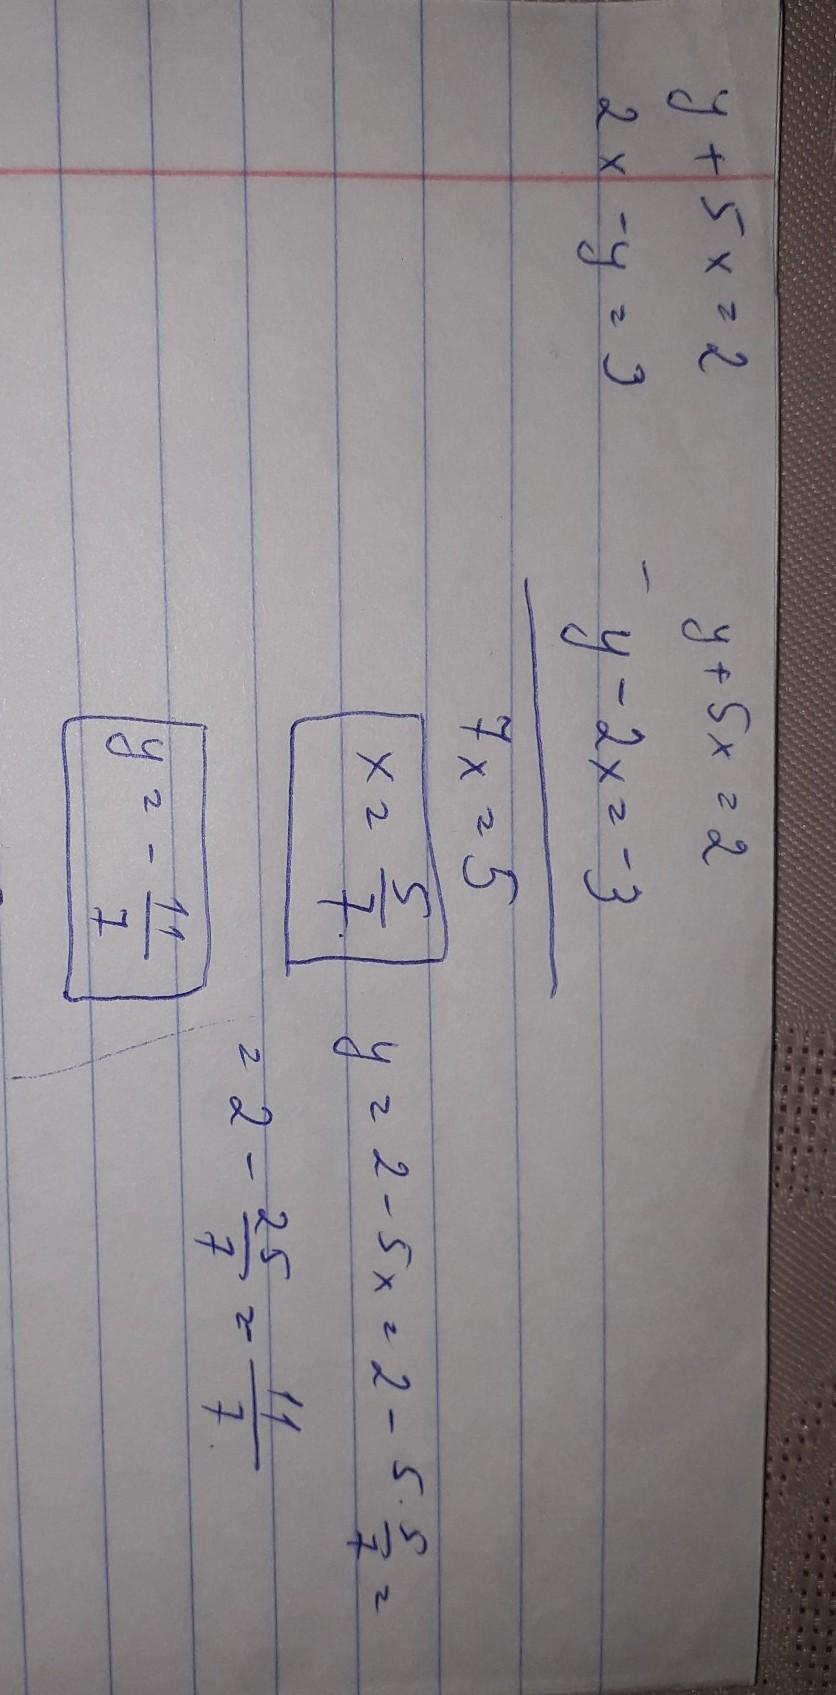 y + 5x = 2 y + 5x = 2
2x - y = 3 - y - 2x = -3
7x = 5
x = 5/7 y = 2 - 5x = 2 - 5 · 5/7 =
= 2 - 25/7 = 11/7
y = - 11/7